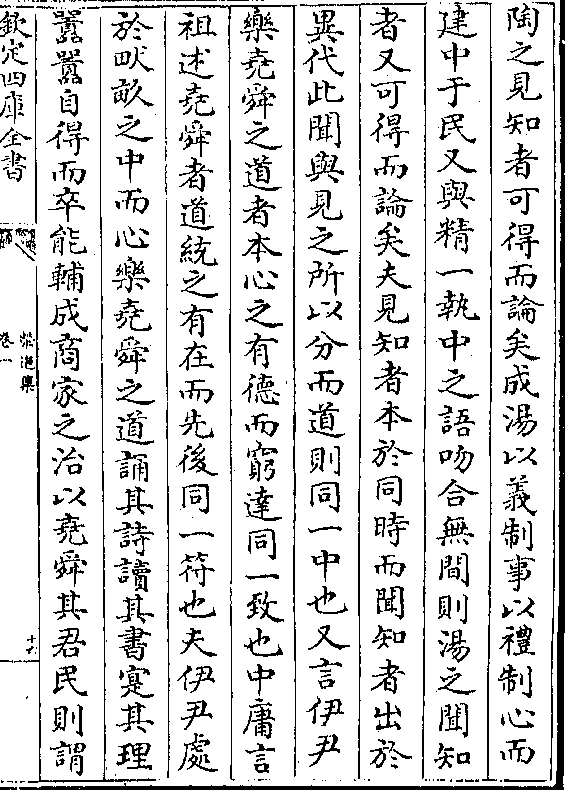 陶之見知者可得而論矣成湯以義制事以禮制心而
建中于民又與精一執中之語吻合無間則湯之聞知
者又可得而論矣夫見知者本於同時而聞知者出於
異代此聞與見之所以分而道則同一中也又言伊尹
樂堯舜之道者本心之有德而窮達同一致也中庸言
祖述堯舜者道統之有在而先後同一符也夫伊尹處
於畎畝之中而心樂堯舜之道誦其詩讀其書寔其理
囂囂自得而卒能輔成商家之治以堯舜其君民則謂
欽定四庫全書
卷一